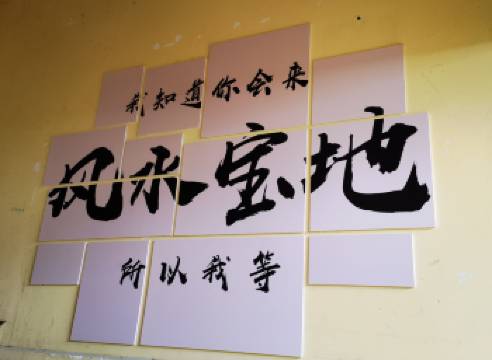 我知道你会来
风水宝地
所以我等